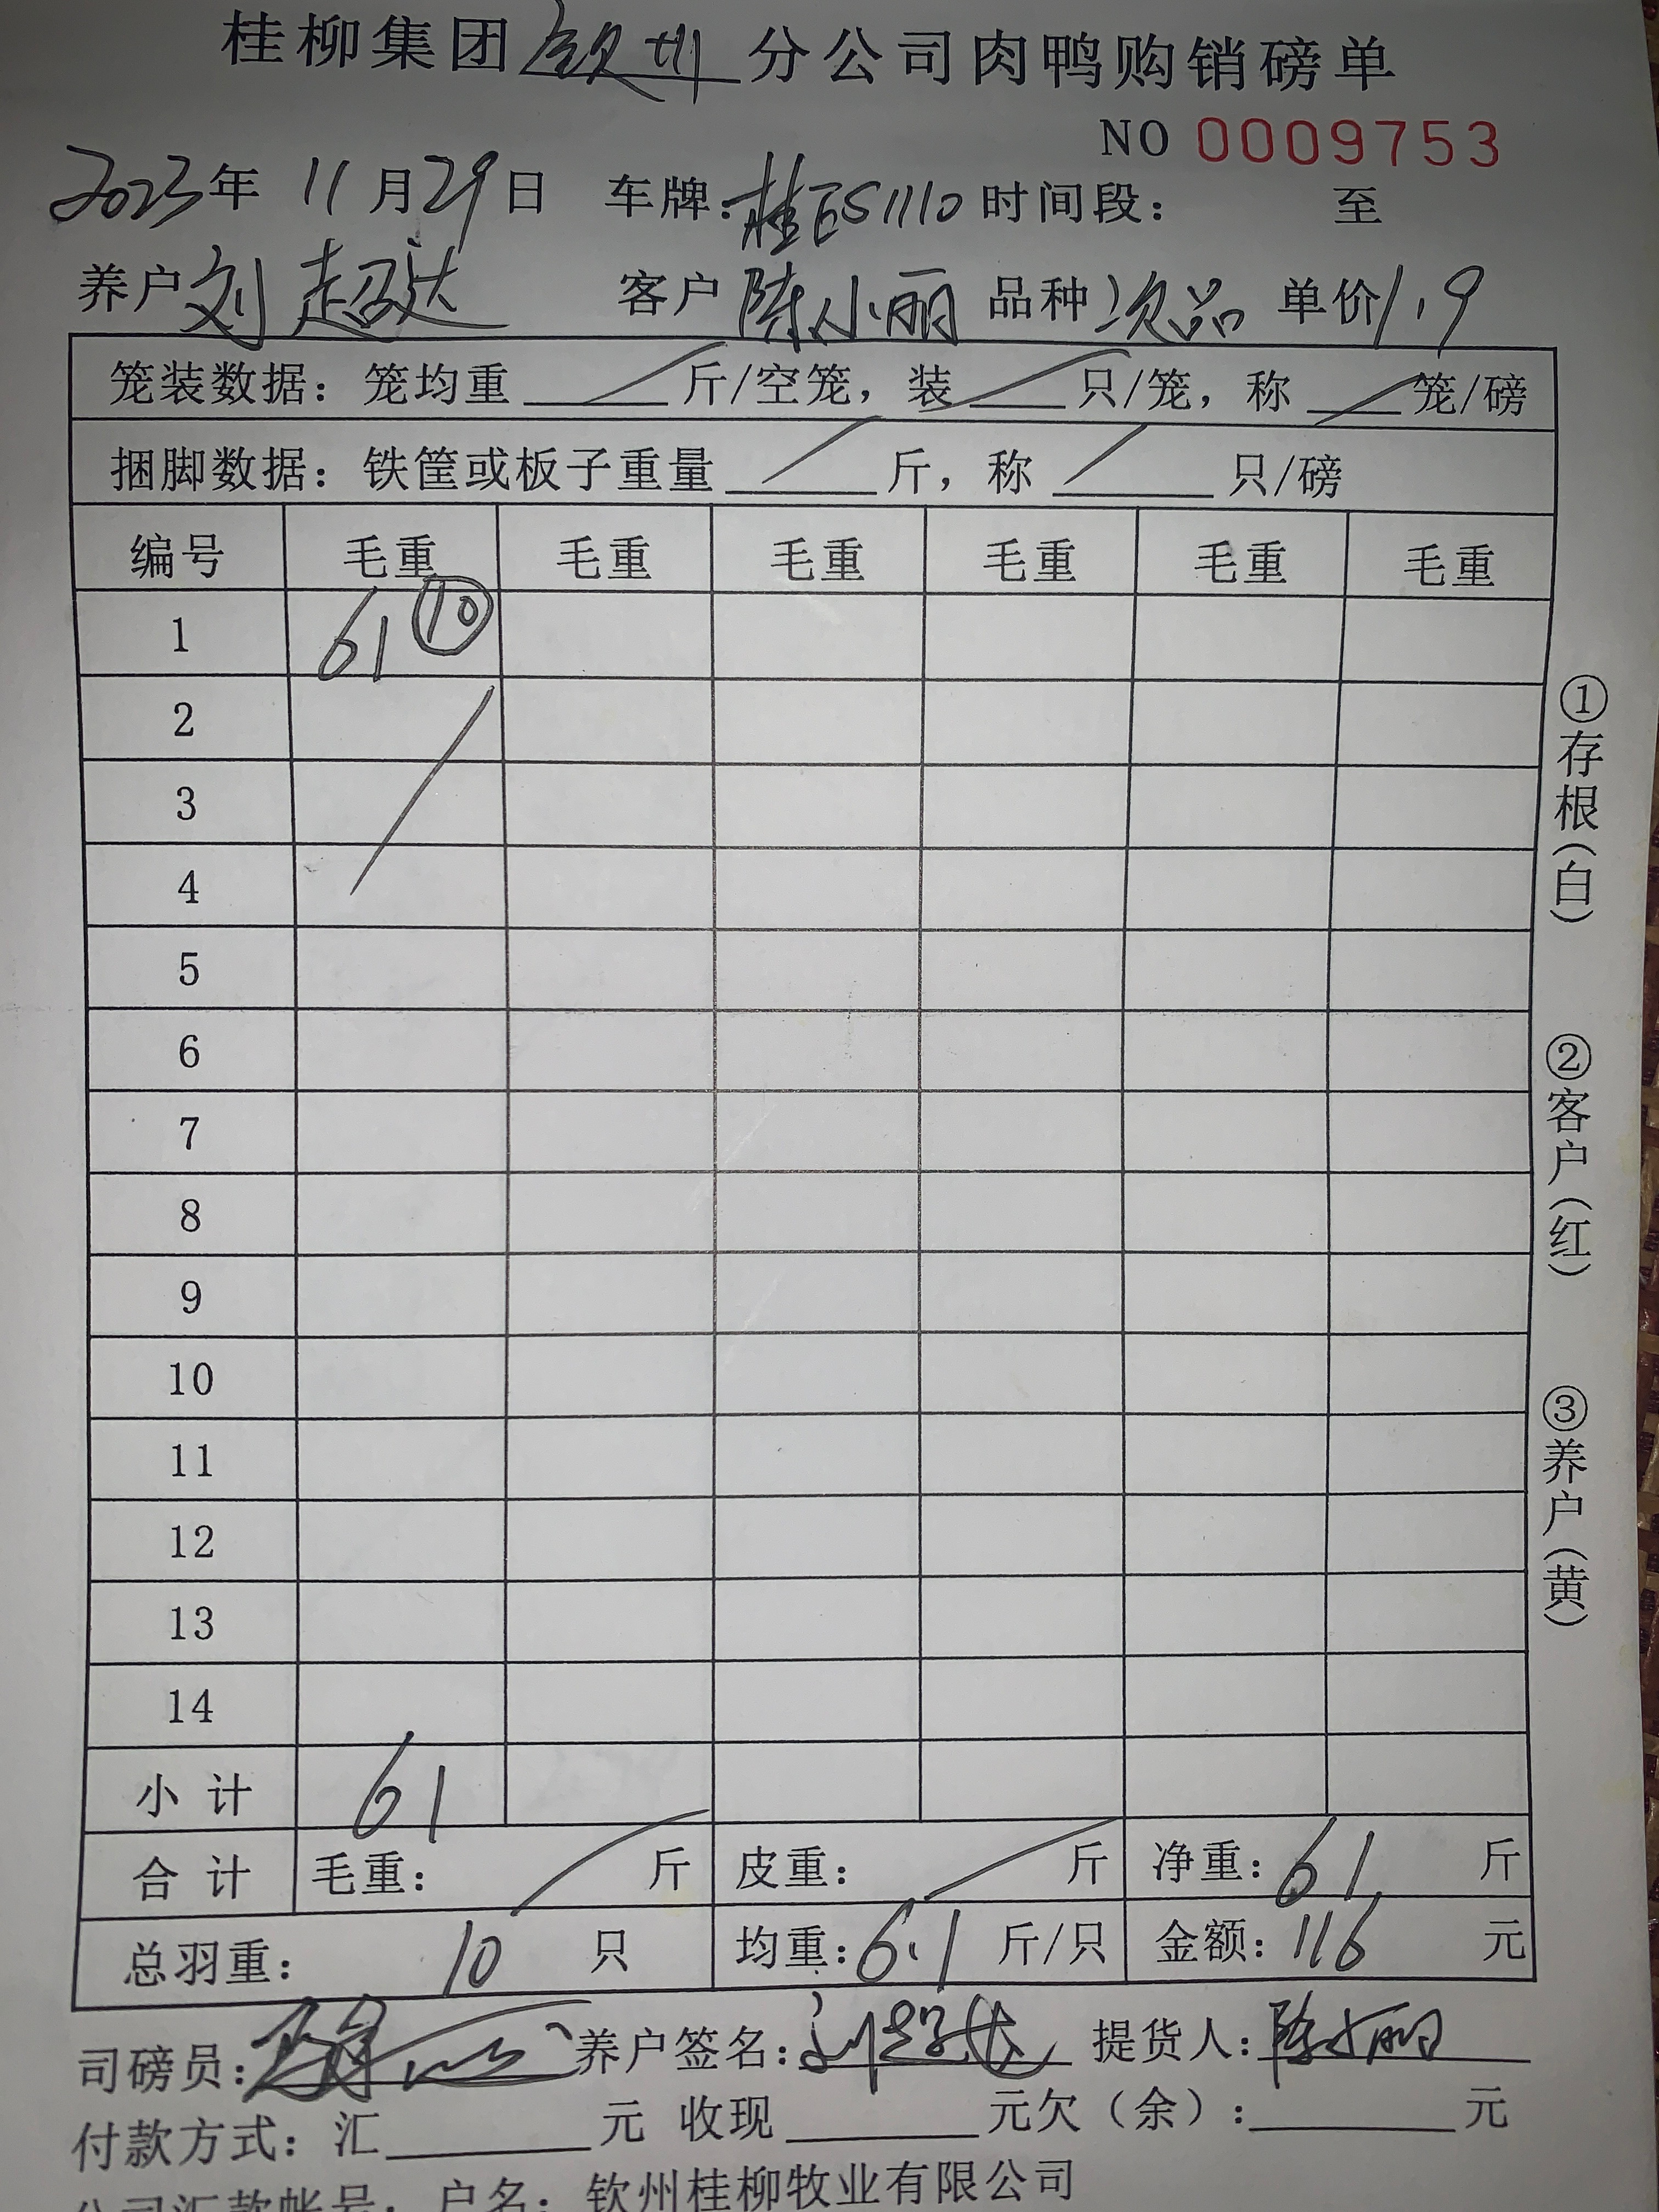 桂柳集团钦州分公司肉鸭购销磅单
NO 0009753
2023年 11月29日 车牌：桂ES1110 时间段： 至
养户 刘超达 客户 陈小丽 品种 次品 单价 1.9
笼装数据：笼均重 / 斤/空笼，装 / 只/笼，称 / 笼/磅
捆脚数据：铁筐或板子重量 / 斤，称 / 只/磅
编号 毛重 毛重 毛重 毛重 毛重 毛重
1 61 ⑩
2
3
4
5
6
7
8
9
10
11
12
13
14
小计 61
合计 毛重： / 斤 皮重： / 斤 净重：61 斤
总羽重： 10 只 均重：6.1 斤/只 金额：116 元
司磅员： 养户签名：刘超达 提货人：陈小丽
付款方式：汇 元 收现 元欠（余）： 元
公司汇款帐号：户名：钦州桂柳牧业有限公司
①存根（白）
②客户（红）
③养户（黄）